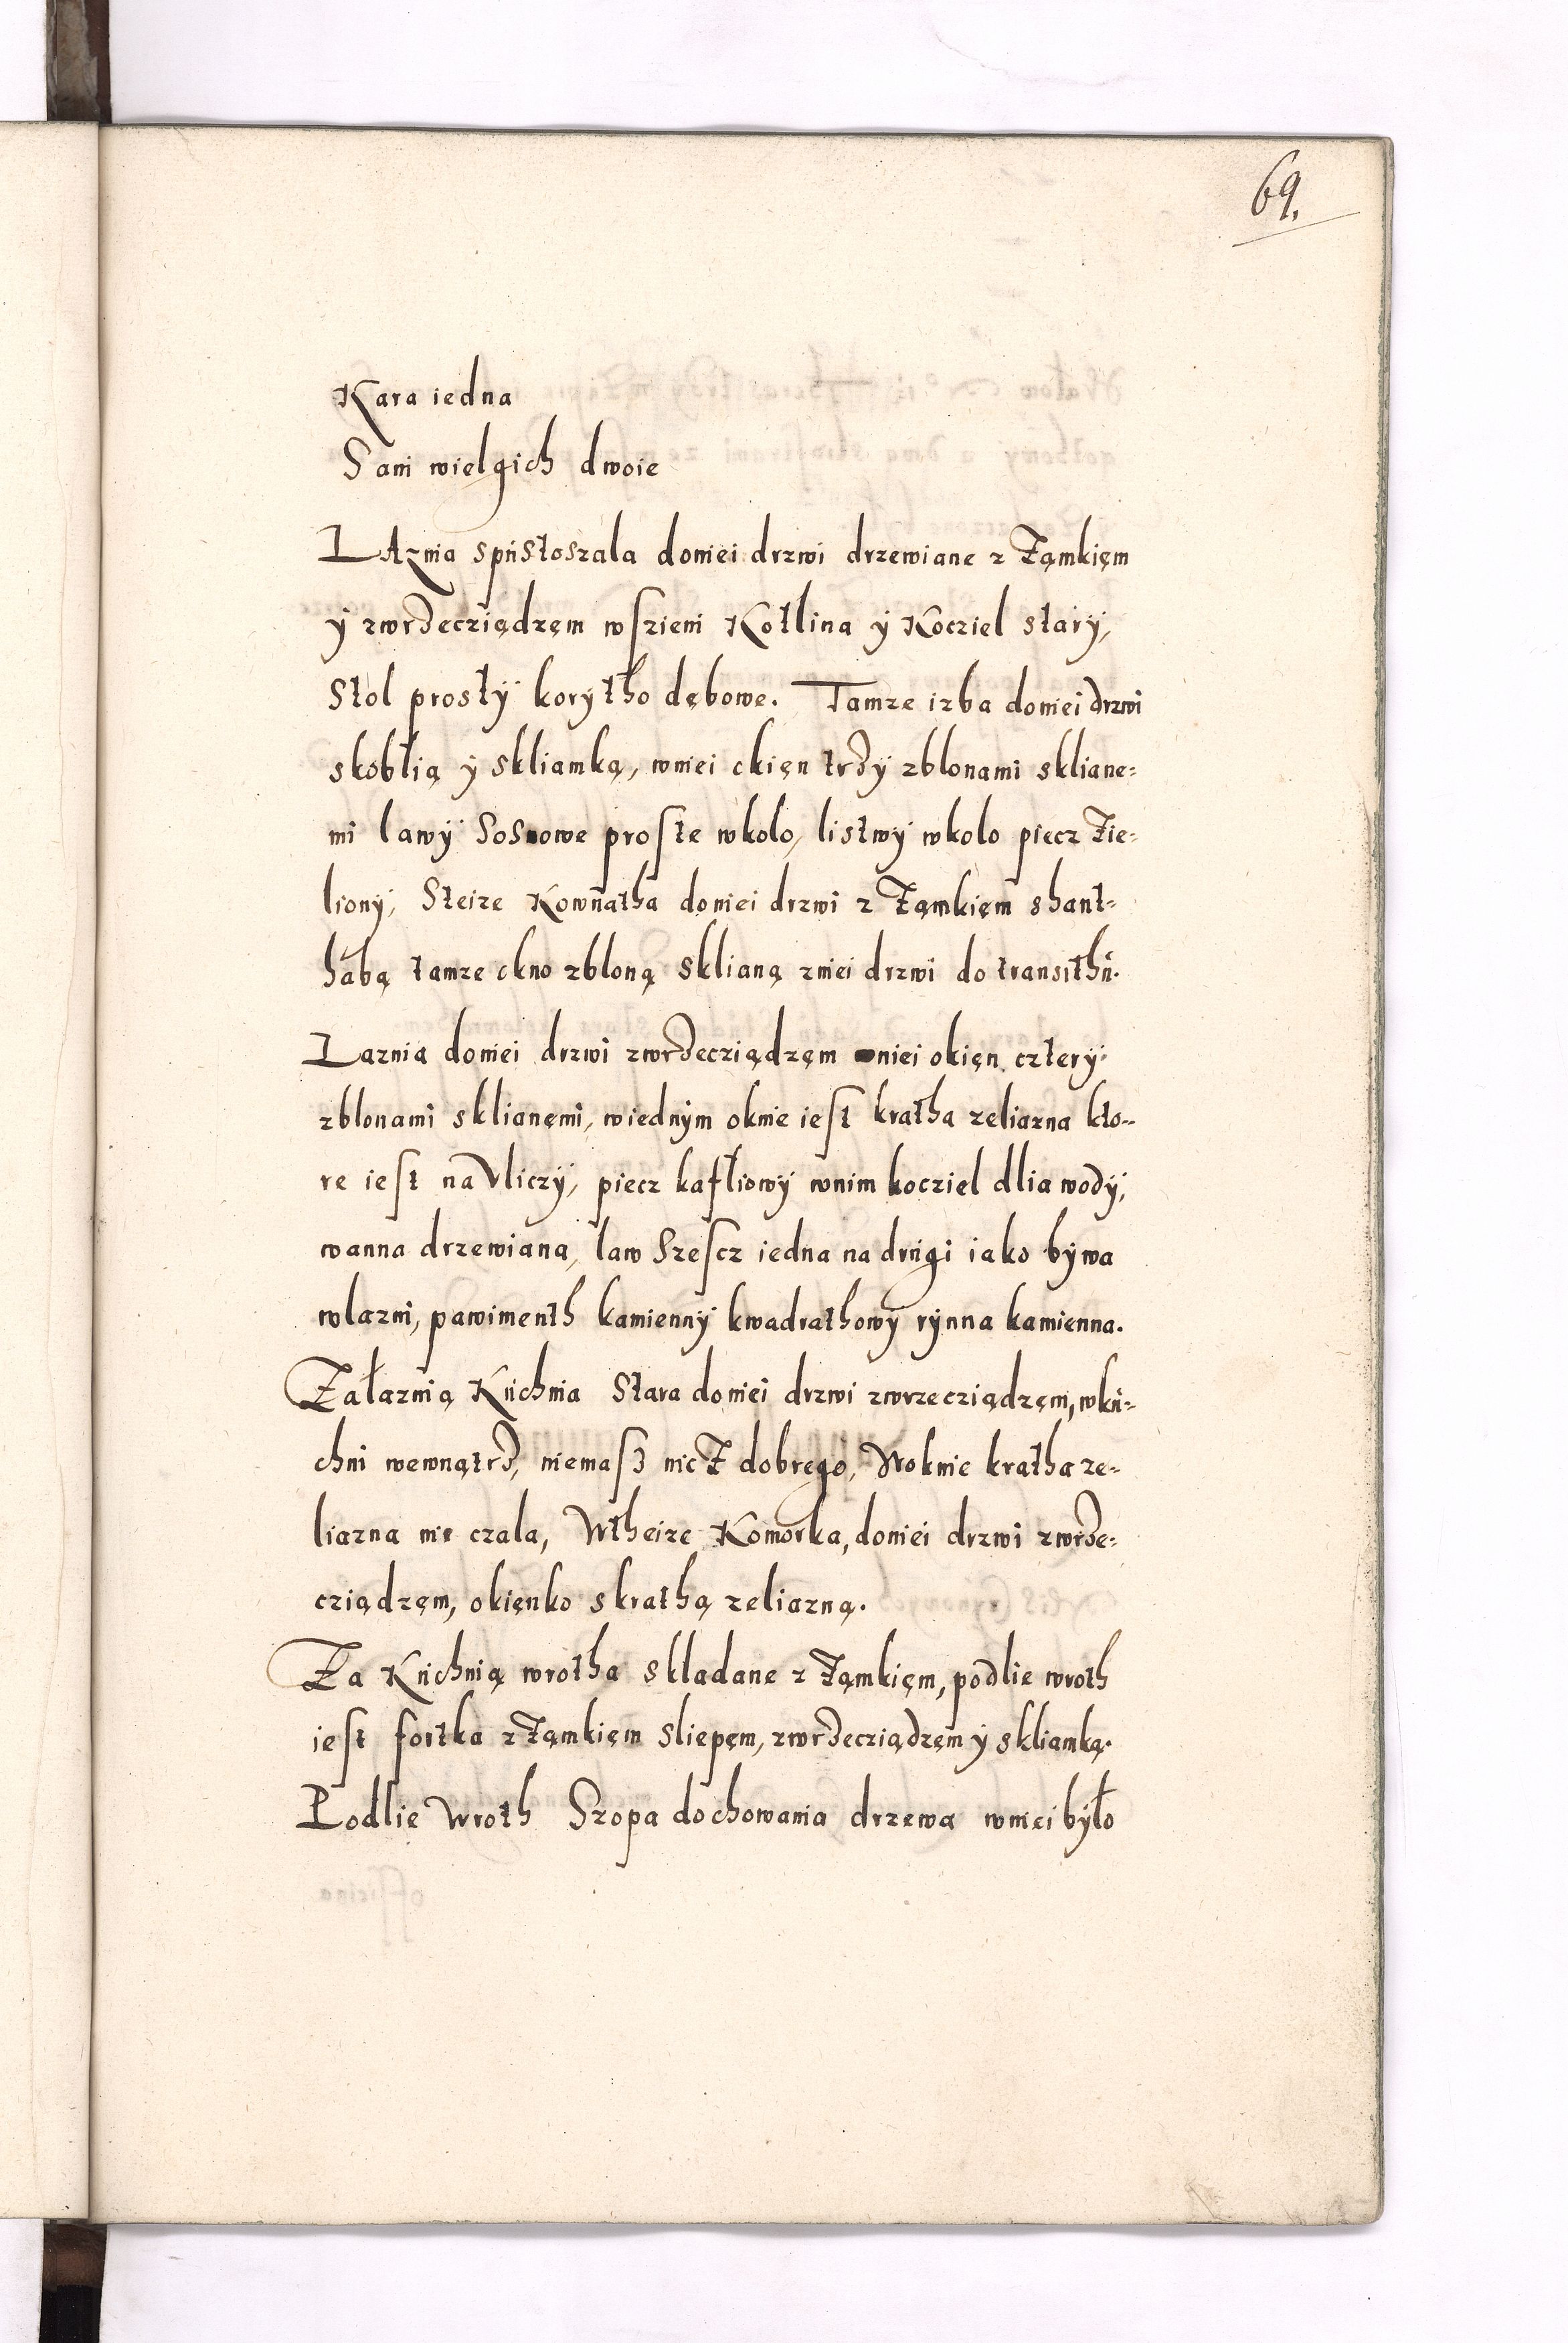 69.
Kara iedna
Sani wielgich dwoie
LAznia spustoszala doniei drzwi drzewiane z Zamkięm
ÿ zwrzecziądzęm wszieni Kotlina ÿ Kocziel starÿ,
Stol prostÿ korÿtho dębowe. Tamze izba doniei drzwi
skoblią ÿ skliamką, wniei okięn trzÿ zblonami skliane=
mi lawÿ Sosnowe proste wkolo, listwÿ wkolo piecz Zie=
lionÿ, Steize Kownatha doniei drzwi z Zamkięm shant=
habą tamze okno zbloną sklianą zniei drzwi do transithu.
Laznia doniei drzwi zwrzecziądzęm wniei okięn czterÿ
zblonami sklianęmi, wiednÿm oknie iest kratha zeliazna kto=
re iest na Vliczÿ, piecz kafliowÿ wnim kocziel dlia wodÿ,
wanna drzewiana, law Szescz iedna na drugi iako bÿwa
wlazni, pawimenth kamiennÿ kwadrathowÿ rÿnna kamienna.
Zalaznią Kuchnia Stara doniei drzwi zwrzecziądzęm, wku=
chni wewnątrz, niemasz nicz dobrego, Woknie kratha ze=
liazna nie czala, Wtheize Komorka, doniei drzwi zwrze=
cziądzęm, okięnko skrathą zeliazną.
Za Kuchnią wrotha skladane z Zamkięm, podlie wroth
iest fortka z Zamkięm Sliepęm, zwrzecziądzęm ÿ skliamką.
Podlie Wroth Szopa dochowania drzewa wniei bÿło